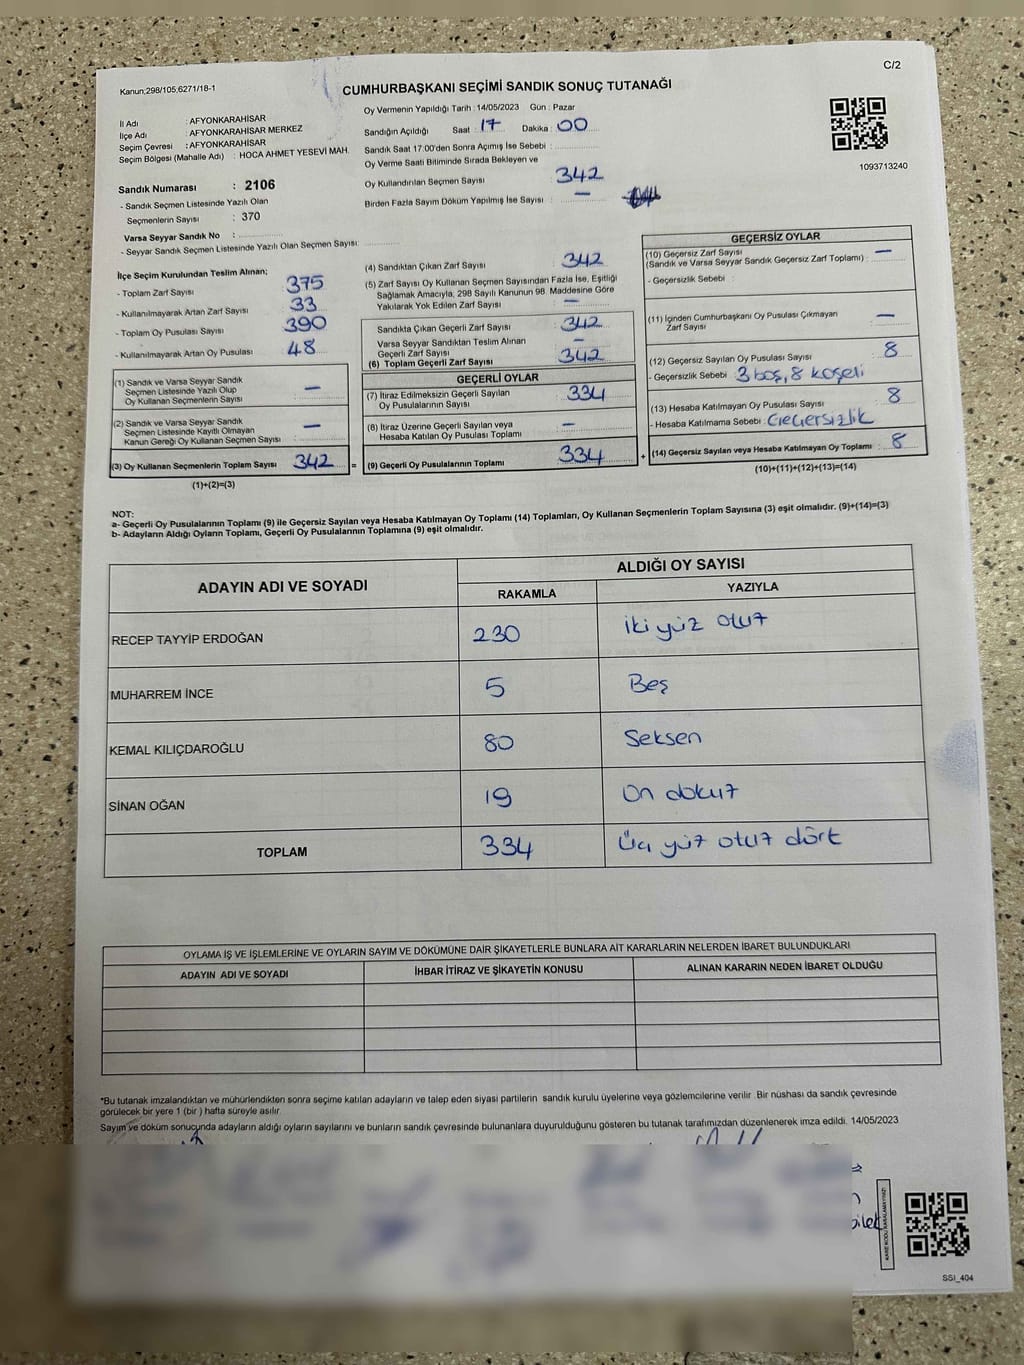 C/2
Kanun;298/105,6271/18-1
CUMHURBAŞKANI SEÇİMİ SANDIK SONUÇ TUTANAĞI
İl Adı : AFYONKARAHİSAR
İlçe Adı : AFYONKARAHİSAR MERKEZ
Seçim Çevresi : AFYONKARAHİSAR
Seçim Bölgesi (Mahalle Adı) : HOCA AHMET YESEVİ MAH.
Oy Vermenin Yapıldığı Tarih : 14/05/2023 Gün : Pazar
Sandığın Açıldığı Saat : 17 Dakika : 00
Sandık Saat 17:00'den Sonra Açımış İse Sebebi :
Oy Verme Saati Bitiminde Sırada Bekleyen ve
Oy Kullandırılan Seçmen Sayısı 342
Birden Fazla Sayım Döküm Yapılmış İse Sayısı : —
1093713240
Sandık Numarası : 2106
- Sandık Seçmen Listesinde Yazılı Olan
Seçmenlerin Sayısı : 370
Varsa Seyyar Sandık No :
- Seyyar Sandık Seçmen Listesinde Yazılı Olan Seçmen Sayısı:
İlçe Seçim Kurulundan Teslim Alınan;
- Toplam Zarf Sayısı 375
- Kullanılmayarak Artan Zarf Sayısı 33
- Toplam Oy Pusulası Sayısı 390
- Kullanılmayarak Artan Oy Pusulası 48
(1) Sandık ve Varsa Seyyar Sandık
Seçmen Listesinde Yazılı Olup
Oy Kullanan Seçmenlerin Sayısı —
(2) Sandık ve Varsa Seyyar Sandık
Seçmen Listesinde Kayıtlı Olmayan
Kanun Gereği Oy Kullanan Seçmen Sayısı : —
(3) Oy Kullanan Seçmenlerin Toplam Sayısı 342 =
(1)+(2)=(3)
(4) Sandıktan Çıkan Zarf Sayısı 342
(5) Zarf Sayısı Oy Kullanan Seçmen Sayısından Fazla İse, Eşitliği
Sağlamak Amacıyla, 298 Sayılı Kanunun 98. Maddesine Göre
Yakılarak Yok Edilen Zarf Sayısı —
Sandıkta Çıkan Geçerli Zarf Sayısı 342
Varsa Seyyar Sandıktan Teslim Alınan
Geçerli Zarf Sayısı —
(6) Toplam Geçerli Zarf Sayısı 342
GEÇERLİ OYLAR
(7) İtiraz Edilmeksizin Geçerli Sayılan
Oy Pusulalarının Sayısı 334
(8) İtiraz Üzerine Geçerli Sayılan veya
Hesaba Katılan Oy Pusulası Toplamı —
(9) Geçerli Oy Pusulalarının Toplamı 334 +
GEÇERSİZ OYLAR
(10) Geçersiz Zarf Sayısı
(Sandık ve Varsa Seyyar Sandık Geçersiz Zarf Toplamı) : —
- Geçersizlik Sebebi
(11) İçinden Cumhurbaşkanı Oy Pusulası Çıkmayan
Zarf Sayısı —
(12) Geçersiz Sayılan Oy Pusulası Sayısı 8
- Geçersizlik Sebebi 3 boş, 8 köşeli
(13) Hesaba Katılmayan Oy Pusulası Sayısı 8
- Hesaba Katılmama Sebebi : Geçersizlik
(14) Geçersiz Sayılan veya Hesaba Katılmayan Oy Toplamı : 8
(10)+(11)+(12)+(13)=(14)
NOT:
a- Geçerli Oy Pusulalarının Toplamı (9) ile Geçersiz Sayılan veya Hesaba Katılmayan Oy Toplamı (14) Toplamları, Oy Kullanan Seçmenlerin Toplam Sayısına (3) eşit olmalıdır. (9)+(14)=(3)
b- Adayların Aldığı Oyların Toplamı, Geçerli Oy Pusulalarının Toplamına (9) eşit olmalıdır.
ADAYIN ADI VE SOYADI
ALDIĞI OY SAYISI
RAKAMLA YAZIYLA
RECEP TAYYİP ERDOĞAN 230 iki yüz otuz
MUHARREM İNCE 5 Beş
KEMAL KILIÇDAROĞLU 80 Seksen
SİNAN OĞAN 19 On dokuz
TOPLAM 334 Üç yüz otuz dört
OYLAMA İŞ VE İŞLEMLERİNE VE OYLARIN SAYIM VE DÖKÜMÜNE DAİR ŞİKAYETLERLE BUNLARA AİT KARARLARIN NELERDEN İBARET BULUNDUKLARI
ADAYIN ADI VE SOYADI İHBAR İTİRAZ VE ŞİKAYETİN KONUSU ALINAN KARARIN NEDEN İBARET OLDUĞU
*Bu tutanak imzalandıktan ve mühürlendikten sonra seçime katılan adayların ve talep eden siyasi partilerin sandık kurulu üyelerine veya gözlemcilerine verilir. Bir nüshası da sandık çevresinde
görülecek bir yere 1 (bir ) hafta süreyle asılır.
Sayım ve döküm sonucunda adayların aldığı oyların sayılarını ve bunların sandık çevresinde bulunanlara duyurulduğunu gösteren bu tutanak tarafımızdan düzenlenerek imza edildi. 14/05/2023
KARE KODU KARALAMAYINIZ!
SSI_404